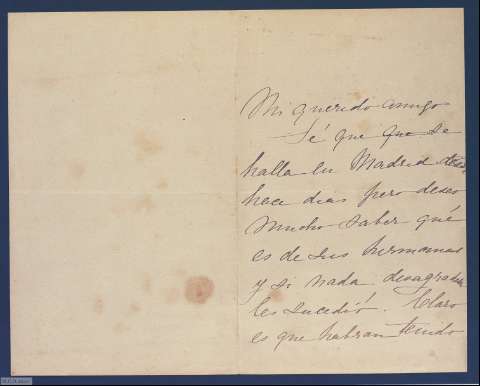 Mi querido amigo
Sé que que se
halla en Madrid
hace dias pero deseo
mucho saber qué
es de sus hermanas
y si nada desagrada
les sucedió. Claro
es que habran tenido